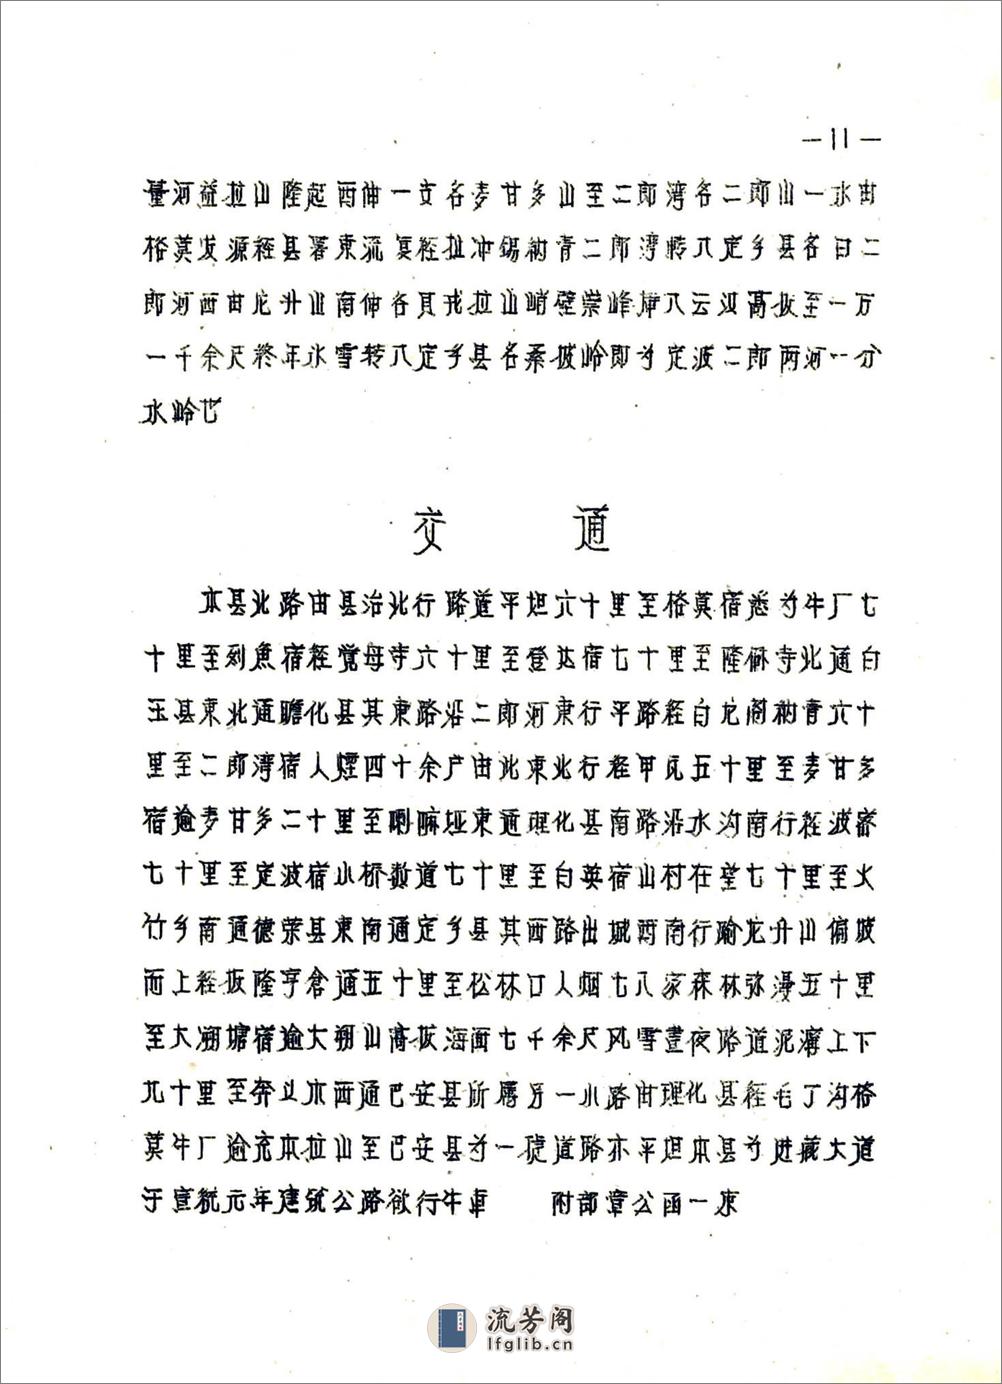 —11—
量河益拉山隆起西伸一支名麦甘多山至二郎湾名二郎山一水由
格莫发源经县署东流复经拉冲锡纳青二郎湾转入定乡县名曰二
郎河西由龙升山南伸名贝戎拉山峭壁崇峰障入云汉高拔至一万
一千余尺终年冰雪转入定乡县名桑披岭即为定波二郎两河一分
水岭也
交 通
本县北路由县治北行路道平坦六十里至格莫宿悉为牛厂七
十里至刻鱼宿经觉母寺六十里至登达宿七十里至隆俅寺北通白
玉县东北通瞻化县其东路沿二郎河东行平路经白龙阁衲青六十
里至二郎湾宿人煙四十余户由北东北行经甲瓦五十里至麦甘多
宿逾麦甘多二十里至喇嘛垭东通理化县南路沿水沟南行经波密
七十里至定波宿小桥数道七十里至白英宿山村在望七十里至火
竹乡南通德荣县东南通定乡县其西路出城西南行踰龙升山偏坡
而上经扳隆亨倉通五十里至松林口人烟七八家森林弥漫五十里
至大溯塘宿逾大朔山高拔海面七千余尺风雪昼夜路道泥泞上下
九十里至奔义木西通巴安县所属另一小路由理化县经毛丁沟格
莫牛厂逾充本拉山至巴安县为一捷道路亦平坦本县为进藏大道
于宣統元年建筑公路欲行牛車 附部章公函一束
流芳阁
lfglib.cn